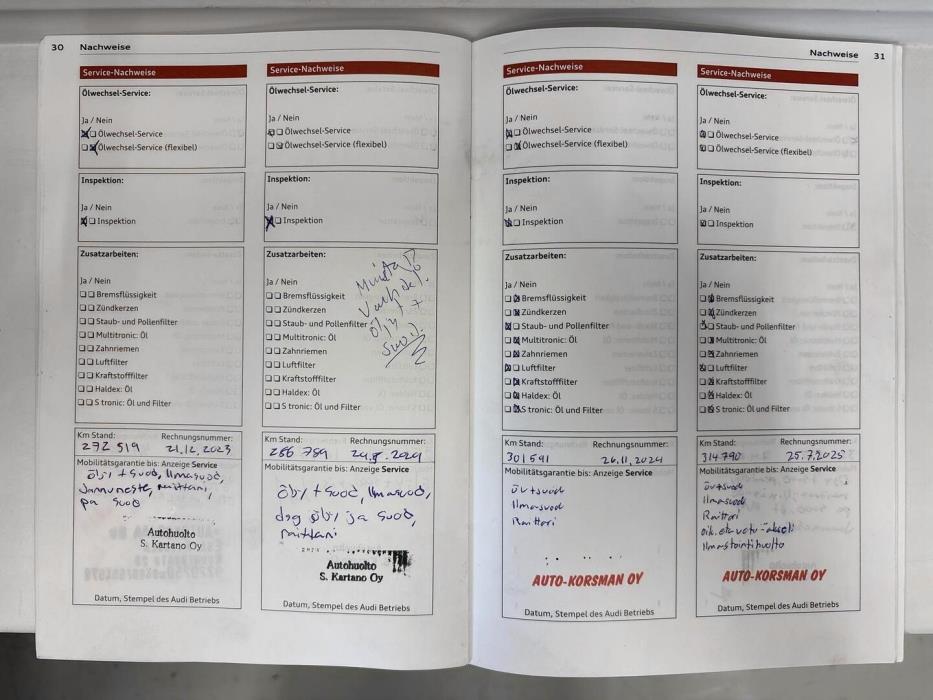 30 Nachweise
Service-Nachweise
Ölwechsel-Service:
Ja / Nein
Ölwechsel-Service
Ölwechsel-Service (flexibel)
Inspektion:
Ja / Nein
Inspektion
Zusatzarbeiten:
Ja / Nein
Bremsflüssigkeit
Zündkerzen
Staub- und Pollenfilter
Multitronic: Öl
Zahnriemen
Luftfilter
Kraftstofffilter
Haldex: Öl
S tronic: Öl und Filter
Km Stand: Rechnungsnummer:
272 519 21.12.2023
Mobilitätsgarantie bis: Anzeige Service
öljy + suod, Ilmasuod,
Jarruneste, raittari,
pa suod
Autohuolto
S. Kartano Oy
Datum, Stempel des Audi Betriebs
Service-Nachweise
Ölwechsel-Service:
Ja / Nein
Ölwechsel-Service
Ölwechsel-Service (flexibel)
Inspektion:
Ja / Nein
Inspektion
Zusatzarbeiten:
Ja / Nein
Bremsflüssigkeit
Zündkerzen
Staub- und Pollenfilter
Multitronic: Öl
Zahnriemen
Luftfilter
Kraftstofffilter
Haldex: Öl
S tronic: Öl und Filter
öljy +
suod.
Km Stand: Rechnungsnummer:
286 789 29.8.2024
Mobilitätsgarantie bis: Anzeige Service
öljy + suod, Ilmasuod,
dsg öljy ja suod,
raittari
Autohuolto
S. Kartano Oy
Datum, Stempel des Audi Betriebs
Nachweise 31
Service-Nachweise
Ölwechsel-Service:
Ja / Nein
Ölwechsel-Service
Ölwechsel-Service (flexibel)
Inspektion:
Ja / Nein
Inspektion
Zusatzarbeiten:
Ja / Nein
Bremsflüssigkeit
Zündkerzen
Staub- und Pollenfilter
Multitronic: Öl
Zahnriemen
Luftfilter
Kraftstofffilter
Haldex: Öl
S tronic: Öl und Filter
Km Stand: Rechnungsnummer:
301 591 26.11.2024
Mobilitätsgarantie bis: Anzeige Service
öv+suod
Ilmasuod
Raittari
AUTO-KORSMAN OY
Datum, Stempel des Audi Betriebs
Service-Nachweise
Ölwechsel-Service:
Ja / Nein
Ölwechsel-Service
Ölwechsel-Service (flexibel)
Inspektion:
Ja / Nein
Inspektion
Zusatzarbeiten:
Ja / Nein
Bremsflüssigkeit
Zündkerzen
Staub- und Pollenfilter
Multitronic: Öl
Zahnriemen
Luftfilter
Kraftstofffilter
Haldex: Öl
S tronic: Öl und Filter
Km Stand: Rechnungsnummer:
314 790 25.7.2025
Mobilitätsgarantie bis: Anzeige Service
öv+suod
Ilmasuod
Raittari
oik. etuveto-akseli
Ilmastointihuolto
AUTO-KORSMAN OY
Datum, Stempel des Audi Betriebs